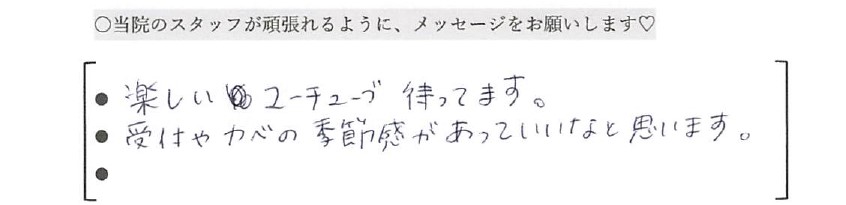 ○当院のスタッフが頑張れるように、メッセージをお願いします♡
● 楽しい ユーチューブ 待ってます。
● 受付やカベの季節感があっていいなと思います。
●